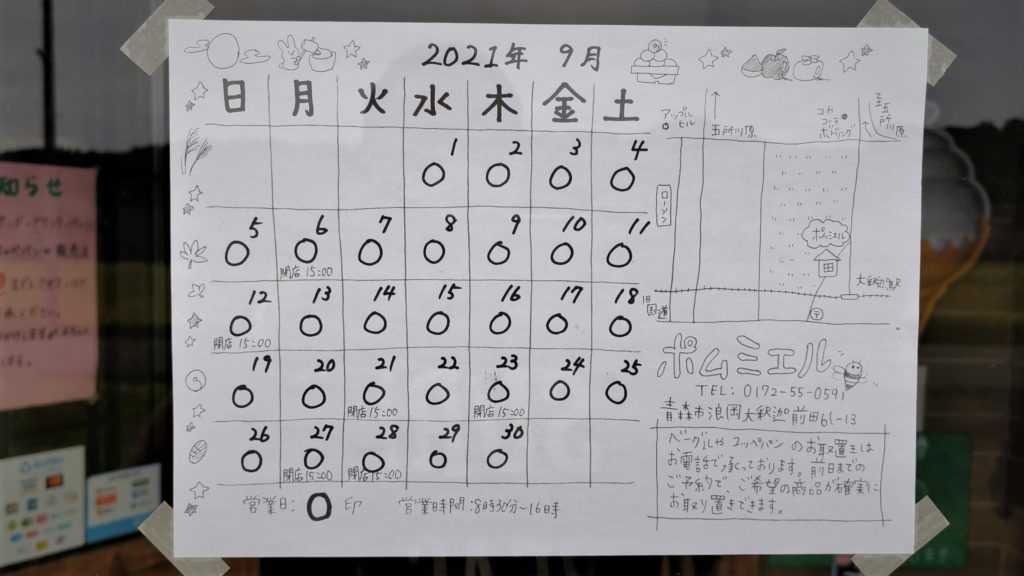 2021年 9月
日 月 火 水 木 金 土
1 2 3 4
5 6 7 8 9 10 11
閉店 15:00
12 13 14 15 16 17 18
閉店 15:00
19 20 21 22 23 24 25
閉店 15:00 閉店 15:00
26 27 28 29 30
閉店 15:00 閉店 15:00
営業日: 〇 印 営業時間:8時30分~16時
アップルヒル
五所川原
コカ
コーラ
ボトリング
至五所川原
ローソン
ポムミエル
大釈迦駅
旧国道
〒
ポムミエル
TEL: 0172-55-0591
青森市浪岡大釈迦前田61-13
ベーグルや コッペパン のお取置きは
お電話で承っております。前日までの
ご予約で、ご希望の商品が確実に
お取り置きできます。
知らせ